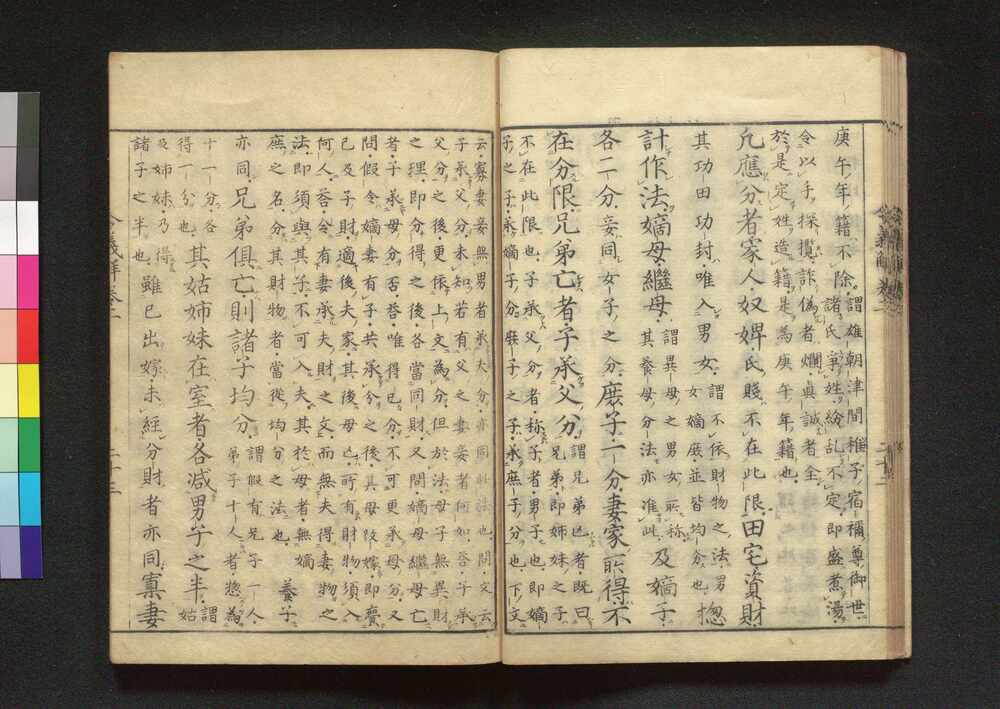 庚午年籍不除謂雄朝津間稚子宿禰尊御世
諸氏爭姓紛乱不定即盛煮湯
令以手探攪詐偽者爛眞誠者全
於是定姓造籍是爲庚午年籍也
凡應分者家人奴婢氏賤不在此限田宅資財
其功田功封唯入男女謂不依財物之法男
女嫡庶並皆均分也惣
計作法嫡母繼母謂異母之男女所稱
其養母分法亦准此及嫡子
各二分妾同女子之分庶子一分妻家所得不
在分限兄弟亡者子承父分謂兄弟亡者既曰
兄弟即姉妹之子
不在此限也子承父分者稱子者男子也即嫡
子之子承嫡子分庶子之子承庶子分也下文
云寡妻妾無男者承夫分亦同此法也問文云
子承父分未知若有父之妻妾者何如答子承
父分之後更依上文爲分但於法母子無異財
之理即分得之後各當同財又問嫡母繼母亡
者子承母分否答唯得已分不可更承母分又
問假令嫡妻有子共承分之後其母改嫁即賷
己及子財適後夫家其後母亡所有財物須入
何人答令有妻承夫財之文而無夫得妻物之
法即須與其子不可入夫其於母者無嫡
庶之名分其財物者當從均分之法也養子
亦同兄弟俱亡則諸子均分謂假有兄子一人
弟子十人者惣爲
十一分各
得一分也其姑姉妹在室者各減男子之半謂姑
及姉妹乃得
諸子之半也雖已出嫁未經分財者亦同寡妻